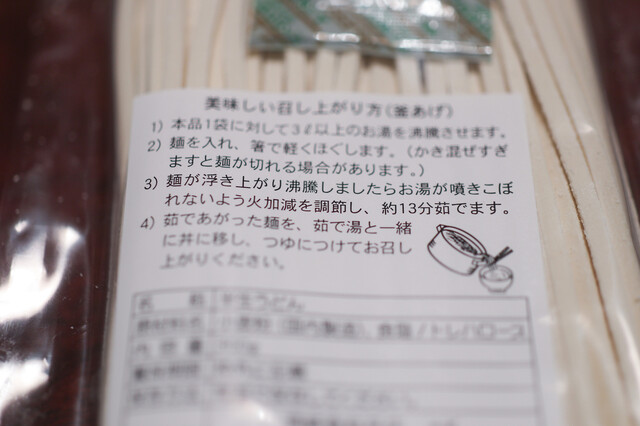 美味しい召し上がり方（釜あげ）
1）本品1袋に対して3ℓ以上のお湯を沸騰させます。
2）麺を入れ、箸で軽くほぐします。（かき混ぜすぎ
ますと麺が切れる場合があります。）
3）麺が浮き上がり沸騰しましたらお湯が噴きこぼ
れないよう火加減を調節し、約13分茹でます。
4）茹であがった麺を、茹で湯と一緒
に丼に移し、つゆにつけてお召し
上がりください。
名 称 半生うどん
原材料名 小麦粉（国内製造）、食塩／トレハロース
内 容 量